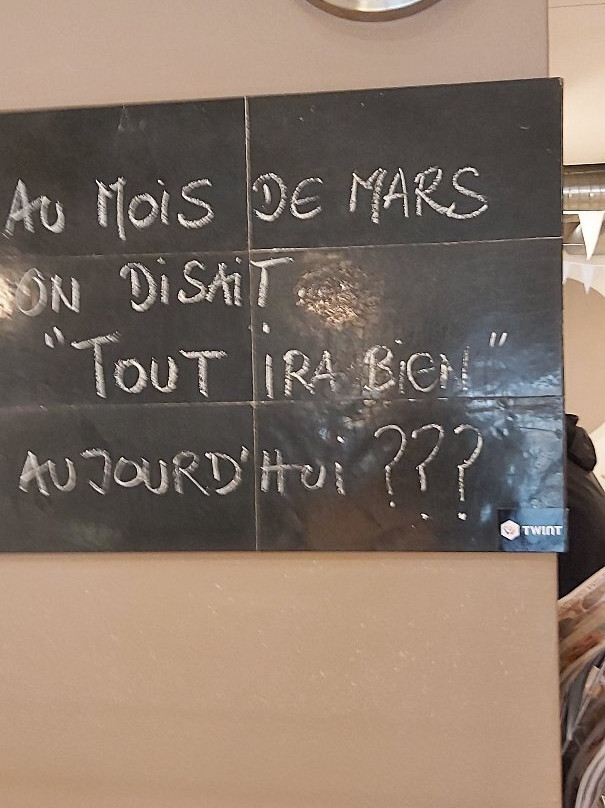 AU MOIS DE MARS
ON DISAIT
"TOUT IRA BIEN"
AUJOURD'HUI ???
TWINT